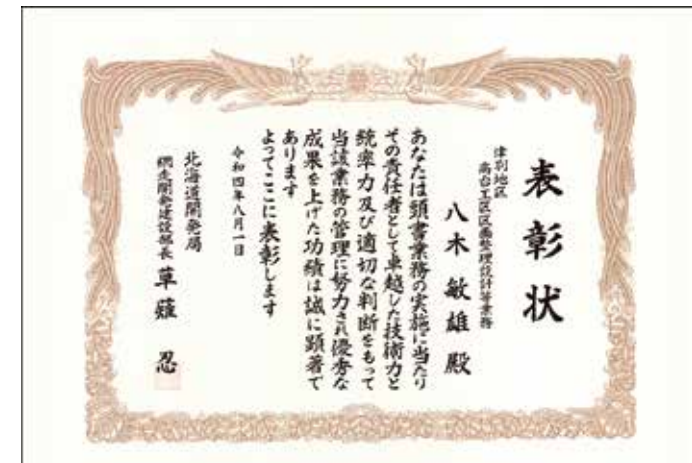 表彰状
津別地区
高台工区区画整理設計等業務
八木敏雄殿
あなたは頭書業務の実施に当たり
その責任者として卓越した技術力と
統率力及び適切な判断をもって
当該業務の管理に努力され優秀な
成果を上げた功績は誠に顕著で
あります
よってここに表彰します
令和四年八月一日
北海道開発局
網走開発建設部長 草薙 忍